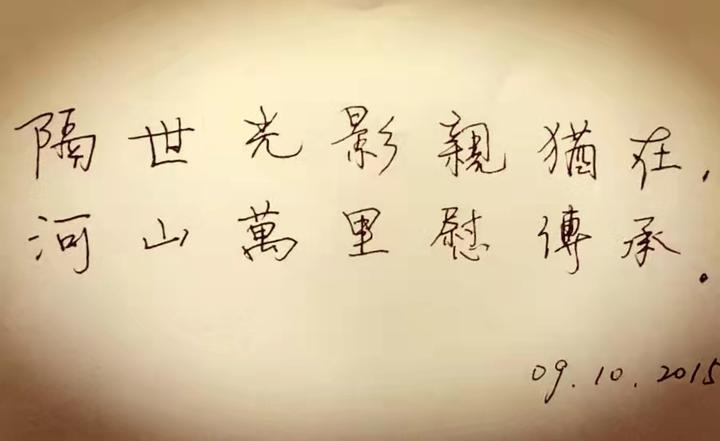 隔世光影親猶在,
河山萬里慰傳承.
09.10.2015